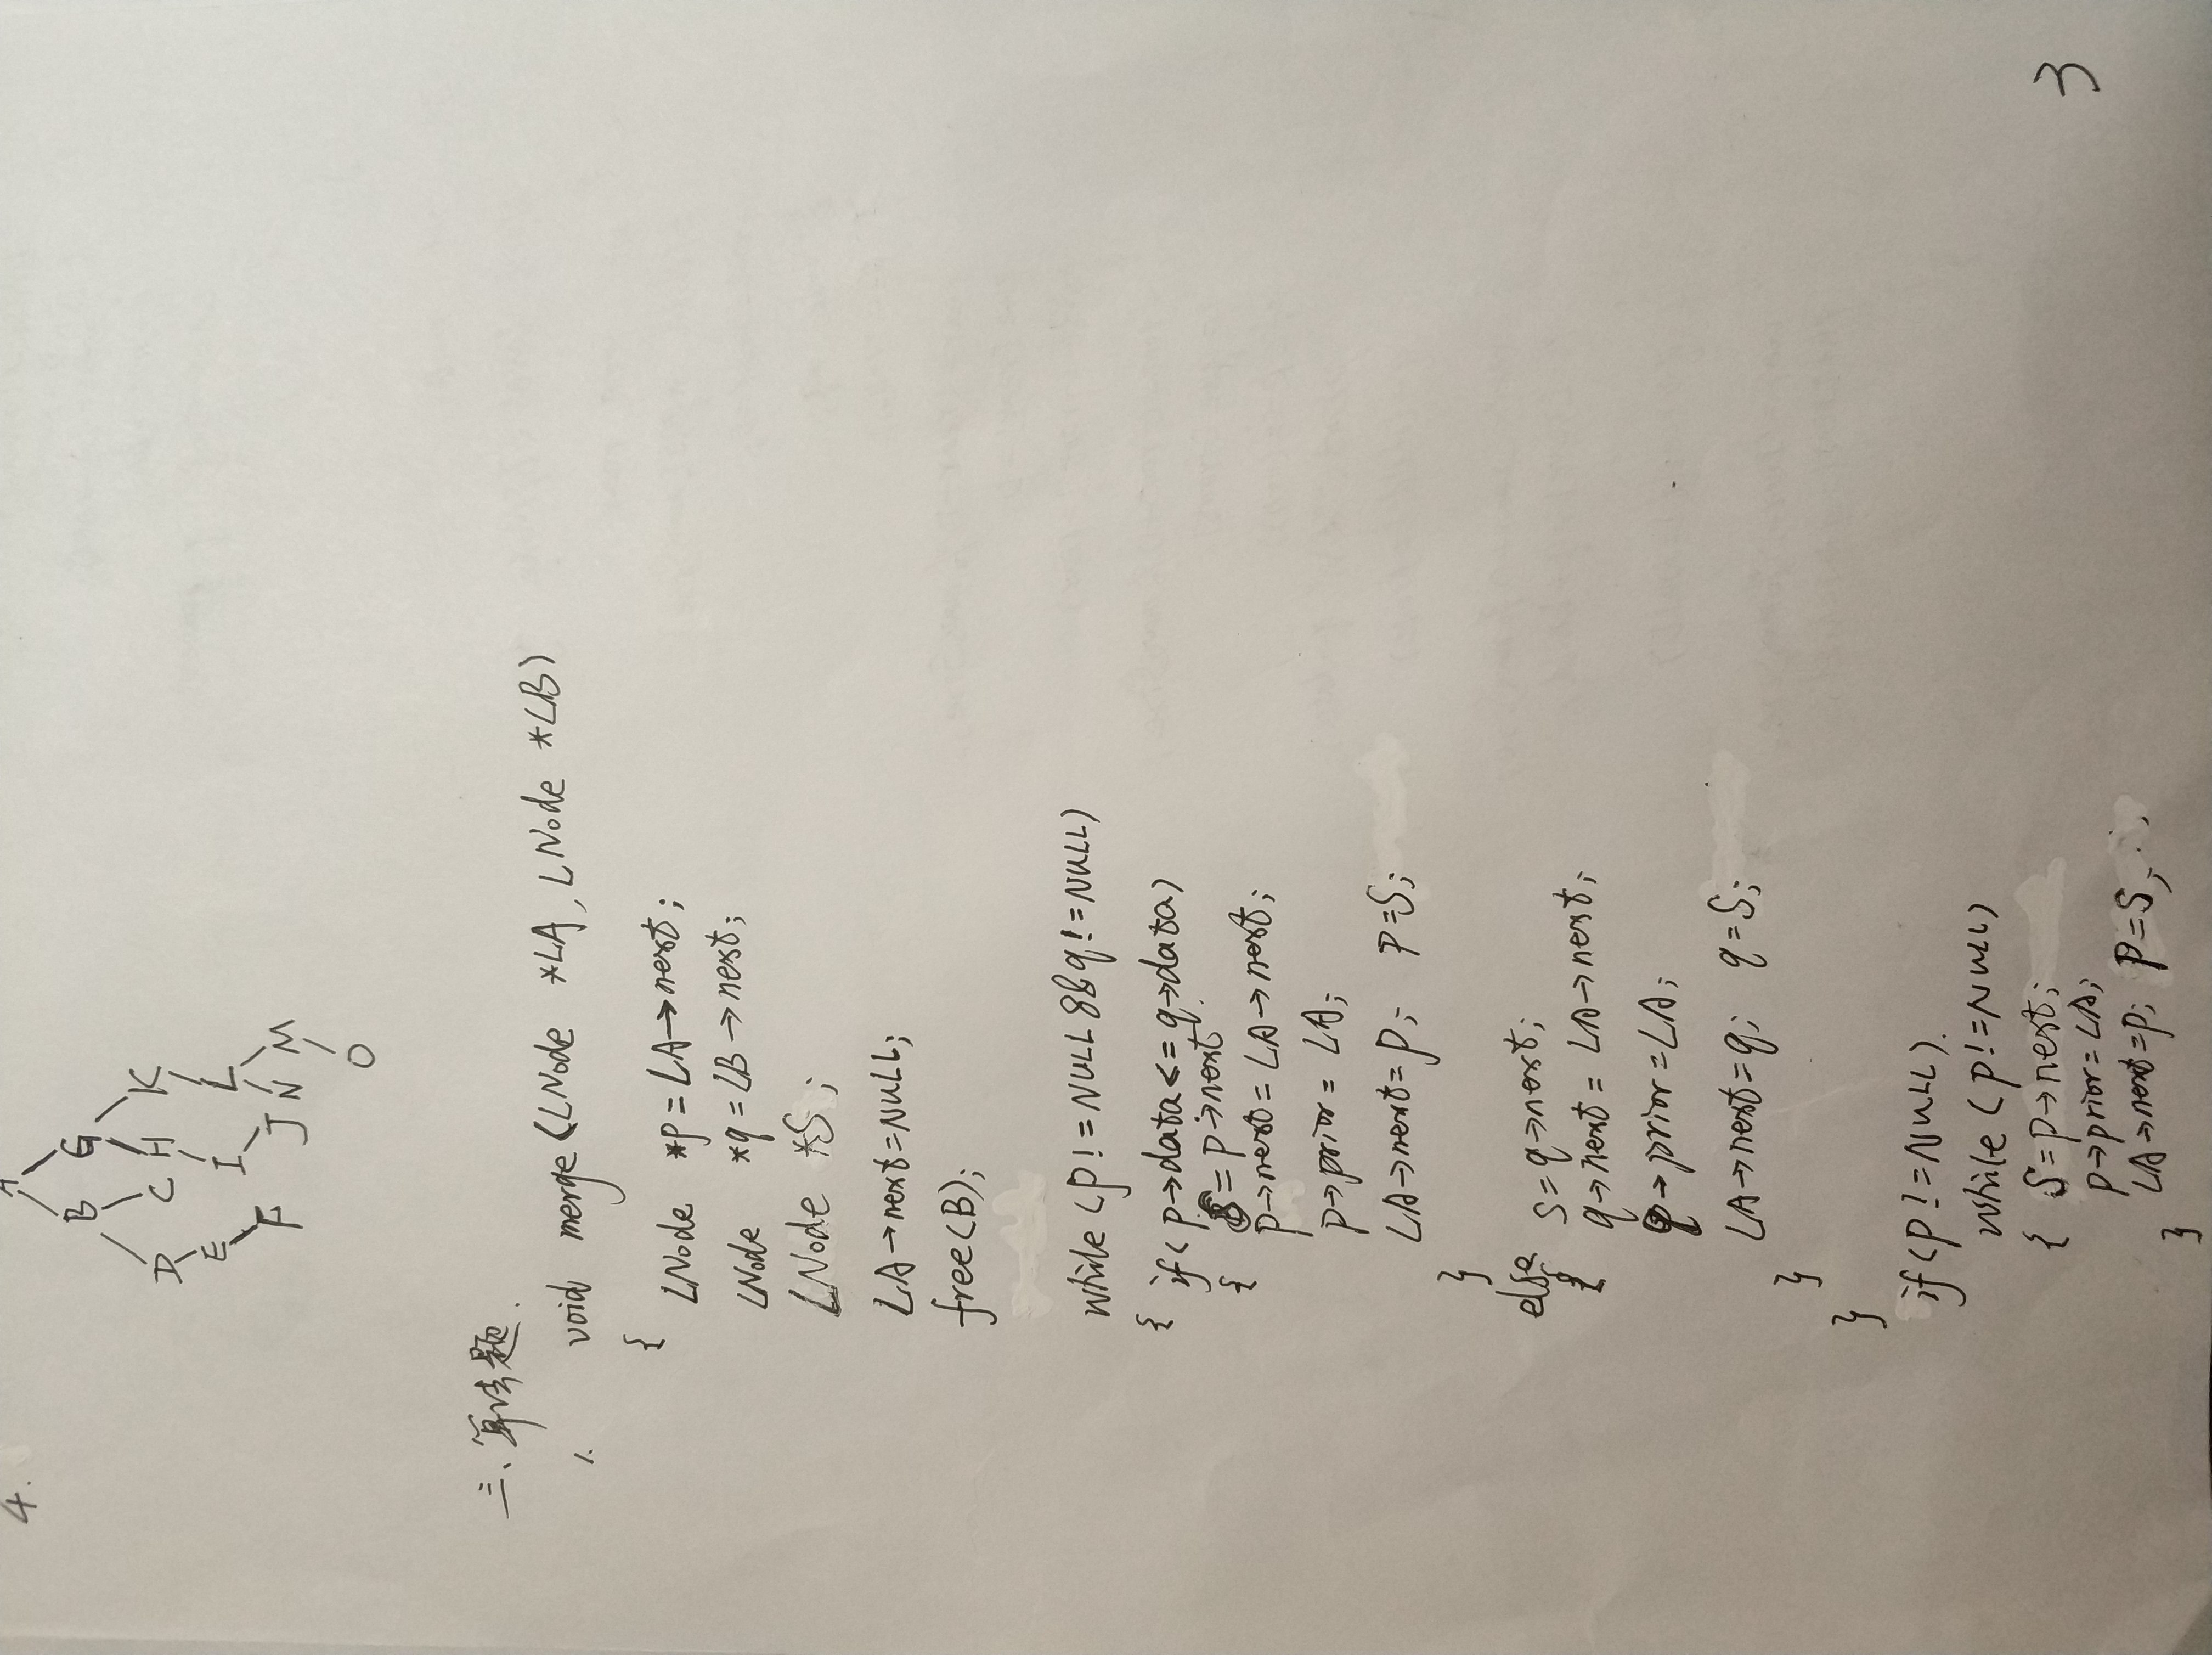 4.
A
B G
D C H K
E I L
F J N M
O
三、算法题.
1. void merge(LNode *LA, LNode *LB)
{
LNode *p=LA→next;
LNode *q=LB→next;
LNode *S;
LA→next=NULL;
free(B);
while (p!=NULL && q!=NULL)
{ if( p→data<=q→data)
{ S=p→next
p→next=LA→next;
p→prior=LA;
LA→next=p; p=S;
}
else
{ S=q→next;
q→next=LA→next;
q→prior=LA;
LA→next=q; q=S;
}
}
if(p!=NULL).
while (p!=NULL)
{ S=p→next;
p→prior=LA;
LA→next=p; p=S;
}
3